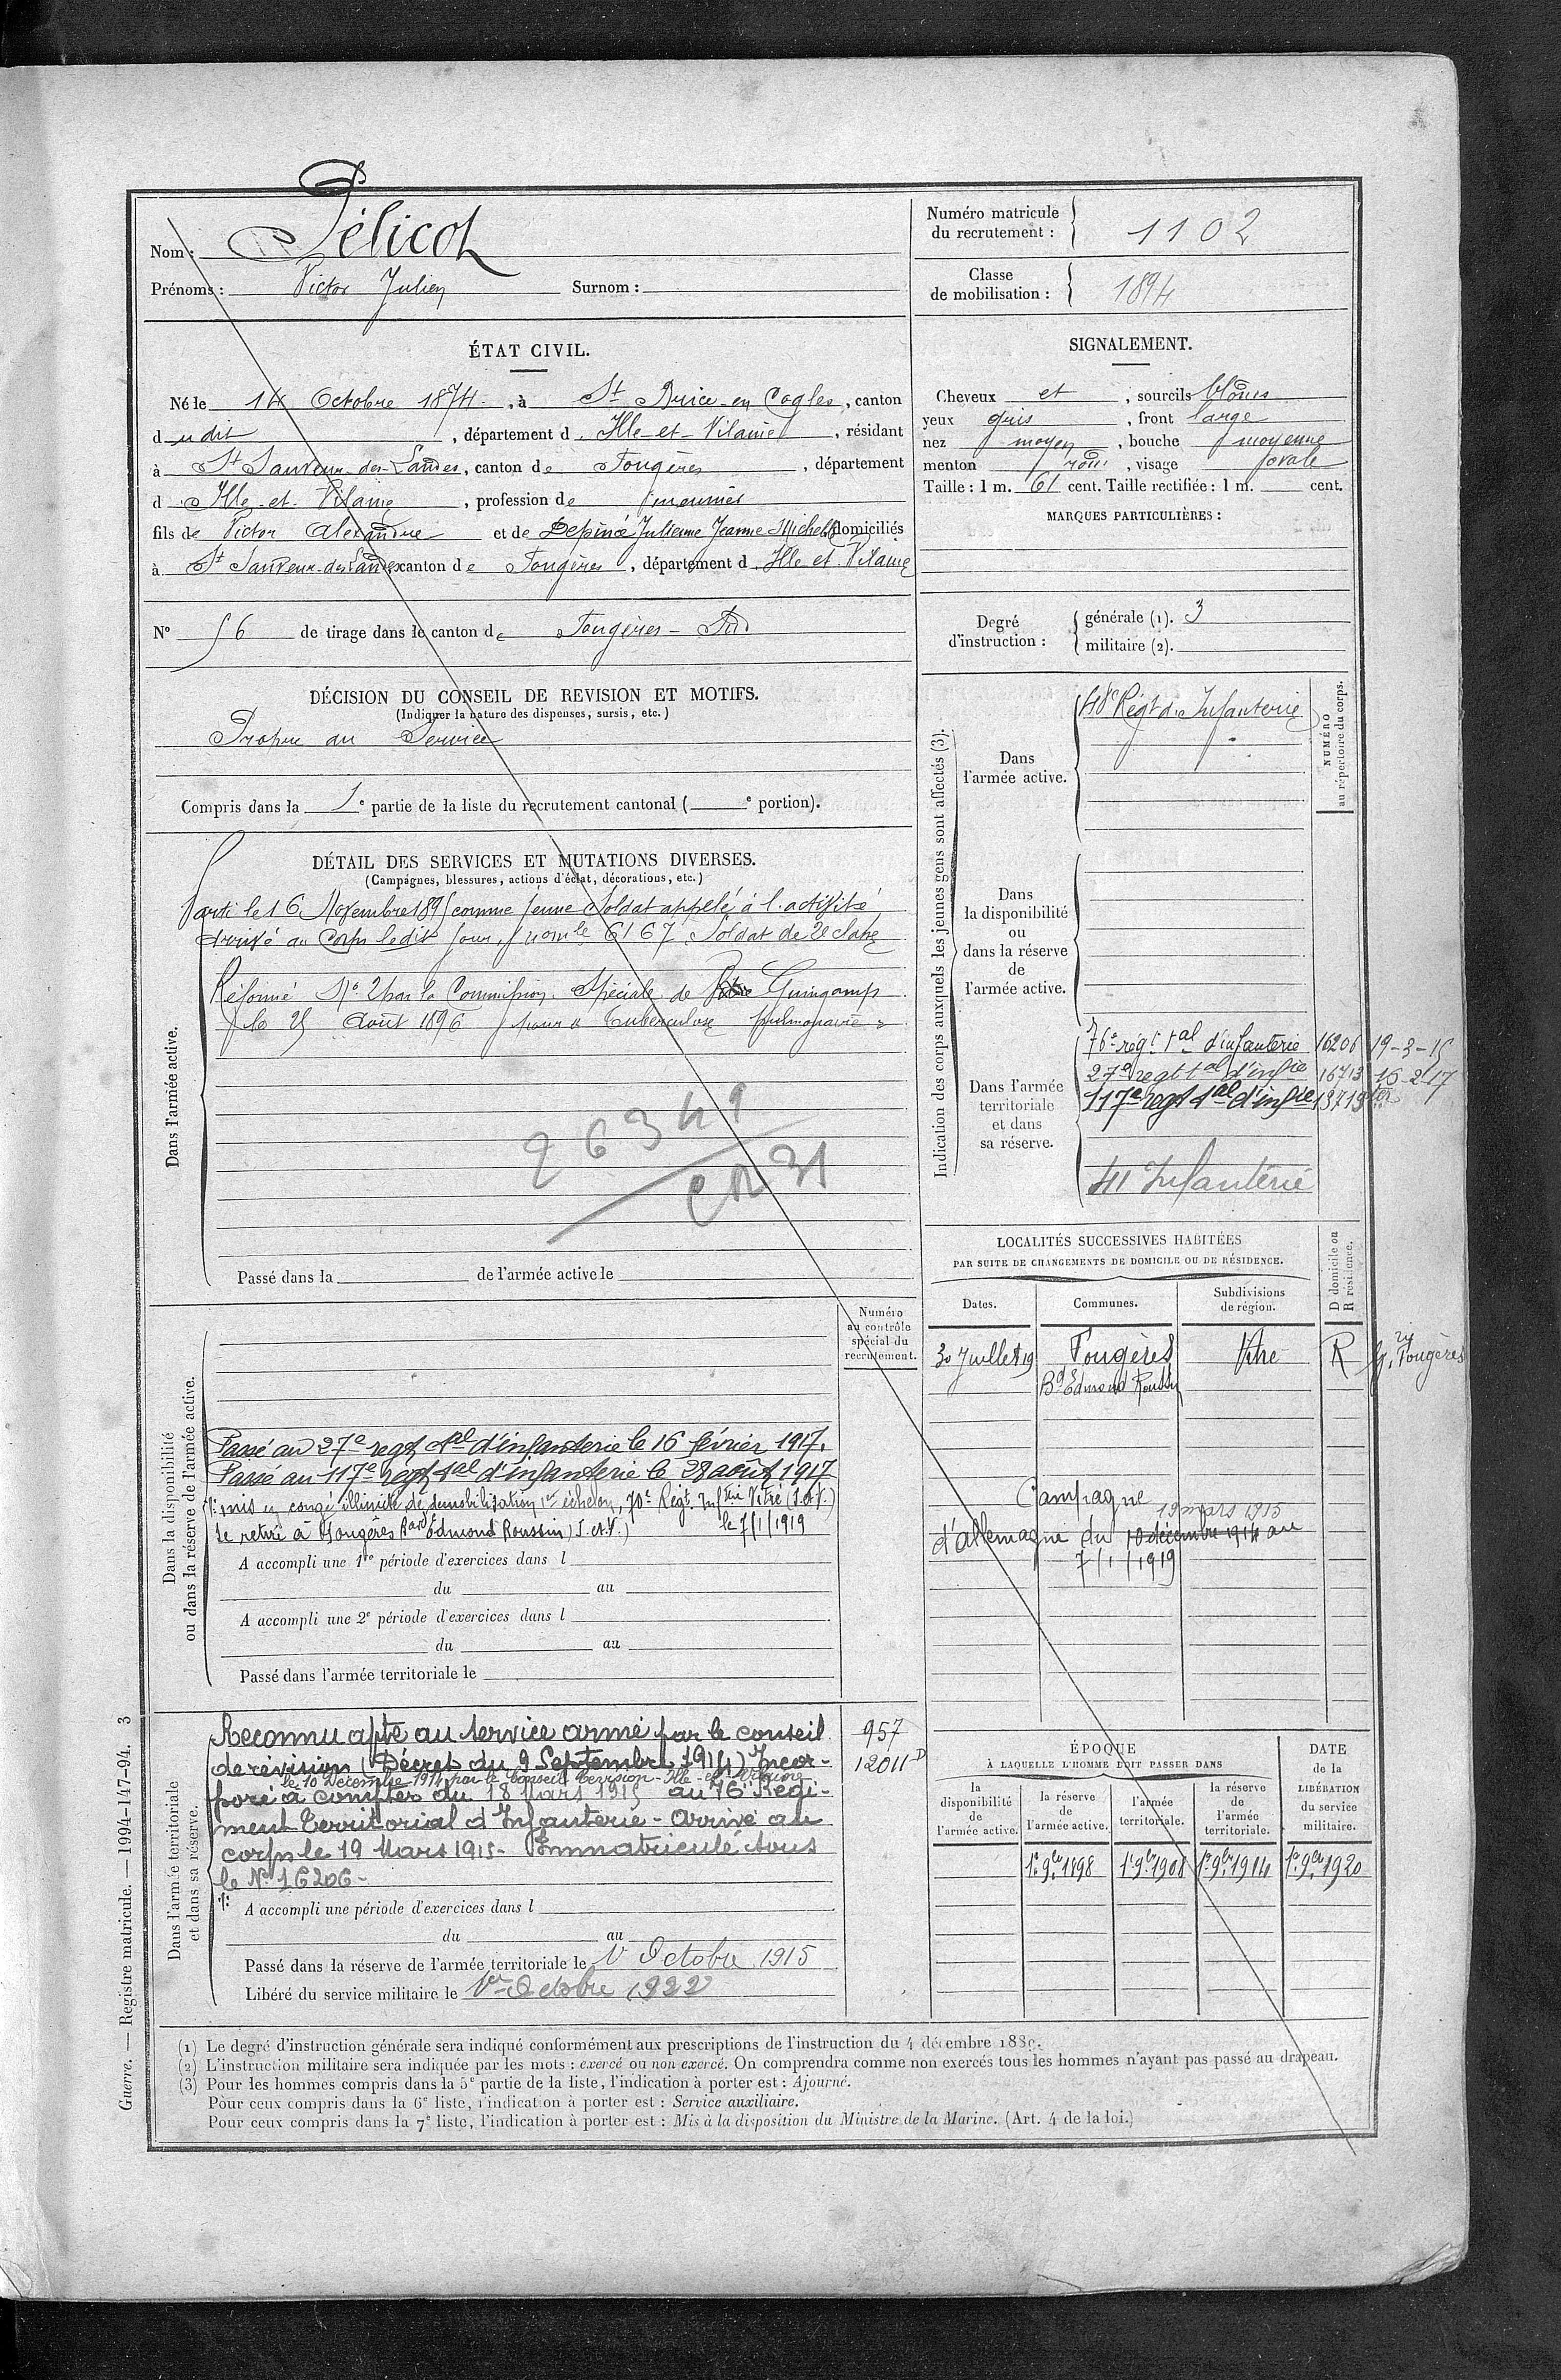 Nom : Pélicot
Prénoms : Victor Julien Surnom :
ÉTAT CIVIL.
Né le 14 Octobre 1874, à St Brice-en-Cogles, canton
dudit, département d'Ille-et-Vilaine, résidant
à St Sauveur-des-Landes, canton de Fougères, département
d'Ille-et-Vilaine, profession de
fils de Victor Alexandre et de Depincé Julienne Jeanne Michelle domiciliés
à St Sauveur-des-Landes canton de Fougères, département d'Ille et Vilaine
No 56 de tirage dans le canton de Fougères-Sud
DÉCISION DU CONSEIL DE REVISION ET MOTIFS.
(Indiquer la nature des dispenses, sursis, etc.)
Propre au Service
Compris dans la 1e partie de la liste du recrutement cantonal ( e portion).
DÉTAIL DES SERVICES ET MUTATIONS DIVERSES.
(Campagnes, blessures, actions d'éclat, décorations, etc.)
Dans l'armée active.
Parti le 16 Novembre 1895 comme jeune Soldat appelé à l'activité
Arrivé au Corps ledit jour, No mle 6167. Soldat de 2e classe
Réformé No 2 par la Commission Spéciale de Guingamp
le 25 Août 1896 pour "Tuberculose pulmonaire"
26349
CR 31
Passé dans la de l'armée active le
Numéro
au contrôle
spécial du
recrutement.
Dans la disponibilité
ou dans la réserve de l'armée active.
Passé au 27e regt tal d'infanterie le 16 février 1917.
Passé au 117e regt tal d'infanterie le 28 août 1917
mis en congé illimité de démobilisation 1er échelon, 70e Régt Inftie Vitré (I. et V.)
Se retire à Fougères Bard Edmond Roussin (I. et V.) le 7/1/1919
A accompli une 1re période d'exercices dans l
du au
A accompli une 2e période d'exercices dans l
du au
Passé dans l'armée territoriale le
Dans l'armée territoriale
et dans sa réserve.
Reconnu apte au service armé par le conseil
de révision (Décret du 9 Septembre 1914) Incor-
le 10 Décembre 1914 par le Conseil Révision - Ille-et-Vilaine
poré à compter du 18 Mars 1915 au 76e Régi-
ment Territorial d'Infanterie - Arrivé au
corps le 19 Mars 1915 - Immatriculé sous
le No 16206 -
957
12011 D
A accompli une période d'exercices dans l
du au
Passé dans la réserve de l'armée territoriale le 1r Octobre 1915
Libéré du service militaire le 1er Octobre 1922
Numéro matricule
du recrutement : 1102
Classe
de mobilisation : 1894
SIGNALEMENT.
Cheveux et, sourcils blonds
yeux gris, front large
nez moyen, bouche moyenne
menton rond, visage ovale
Taille : 1 m. 61 cent. Taille rectifiée : 1 m. cent.
MARQUES PARTICULIÈRES :
Degré
d'instruction :
générale (1). 3
militaire (2).
Indication des corps auxquels les jeunes gens sont affectés (3).
NUMÉRO
au répertoire du corps.
Dans
l'armée active.
48e Régt d'Infanterie
Dans
la disponibilité
ou
dans la réserve
de
l'armée active.
Dans l'armée
territoriale
et dans
sa réserve.
76e régt tal d'infanterie 16206 19-3-15
27e regt tal d'infie 16713 16-2-17
117e regt tal d'infie 13719
41 Infanterie
LOCALITÉS SUCCESSIVES HABITÉES
PAR SUITE DE CHANGEMENTS DE DOMICILE OU DE RÉSIDENCE.
Dates. Communes. Subdivisions
de région.
D domicile ou
R résidence.
30 Juillet 19 Fougères Vitré R Fougères
Bd Edmond Roussin
Campagne
19 mars 1915
d'Allemagne du 10 décembre 1914 au
7/1/1919
ÉPOQUE
À LAQUELLE L'HOMME DOIT PASSER DANS
DATE
de la
LIBÉRATION
du service
militaire.
la
disponibilité
de
l'armée active.
la réserve
de
l'armée active.
l'armée
territoriale.
la réserve
de
l'armée
territoriale.
1r 9bre 1898 1r 9bre 1908 1r 9bre 1914 1r 9bre 1920
(1) Le degré d'instruction générale sera indiqué conformément aux prescriptions de l'instruction du 4 décembre 1889.
(2) L'instruction militaire sera indiquée par les mots : exercé ou non exercé. On comprendra comme non exercés tous les hommes n'ayant pas passé au drapeau.
(3) Pour les hommes compris dans la 5e partie de la liste, l'indication à porter est : Ajourné.
Pour ceux compris dans la 6e liste, l'indication à porter est : Service auxiliaire.
Pour ceux compris dans la 7e liste, l'indication à porter est : Mis à la disposition du Ministre de la Marine. (Art. 4 de la loi.)
Guerre. — Registre matricule. — 1994-147-94. 3